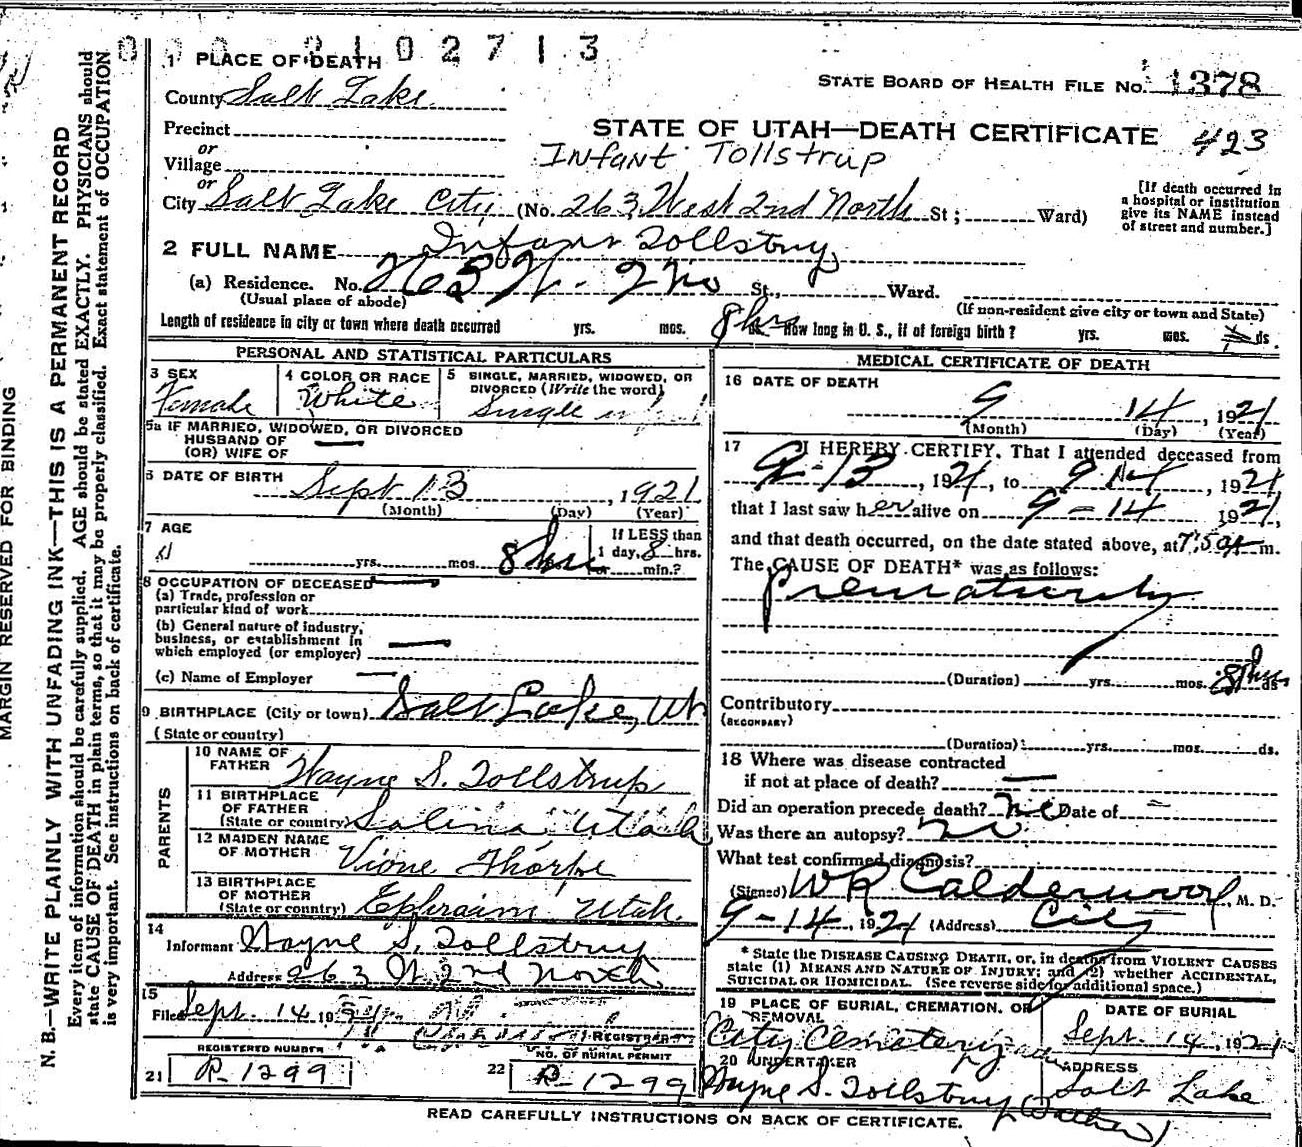 0 0 0 2 1 0 2 7 1 3
1 PLACE OF DEATH
STATE BOARD OF HEALTH FILE No. 1378
County Salt Lake
Precinct
STATE OF UTAH—DEATH CERTIFICATE 423
or
Village
Infant Tollstrup
or
City Salt Lake City (No. 263 West 2nd North St; Ward)
[If death occurred in a hospital or institution give its NAME instead of street and number.]
2 FULL NAME Infant Tollstrup
(a) Residence. No. 263 W. 2 No St., Ward.
(Usual place of abode)
(If non-resident give city or town and State)
Length of residence in city or town where death occurred yrs. mos. 8 hrs How long in U. S., if of foreign birth? yrs. mos. ds.
PERSONAL AND STATISTICAL PARTICULARS
3 SEX
Female
4 COLOR OR RACE
White
5 SINGLE, MARRIED, WIDOWED, OR DIVORCED (Write the word)
Single
5a IF MARRIED, WIDOWED, OR DIVORCED
HUSBAND OF
(OR) WIFE OF
6 DATE OF BIRTH Sept 13, 1921
(Month) (Day) (Year)
7 AGE
yrs. mos. 8 hrs
If LESS than
1 day, 8 hrs.
or min.?
8 OCCUPATION OF DECEASED
(a) Trade, profession or
particular kind of work
(b) General nature of industry,
business, or establishment in
which employed (or employer)
(c) Name of Employer
9 BIRTHPLACE (City or town) Salt Lake, Ut
(State or country)
PARENTS
10 NAME OF
FATHER Wayne S. Tollstrup
11 BIRTHPLACE
OF FATHER
(State or country) Salina Utah
12 MAIDEN NAME
OF MOTHER Vione Thorpe
13 BIRTHPLACE
OF MOTHER
(State or country) Ephraim Utah.
14
Informant Wayne S. Tollstrup
Address 263 W. 2nd North
15
Filed Sept. 14 19
REGISTRAR
REGISTERED NUMBER
21 R-1299
NO. OF BURIAL PERMIT
22 R-1299
MEDICAL CERTIFICATE OF DEATH
16 DATE OF DEATH
9 14, 1921
(Month) (Day) (Year)
17 I HEREBY CERTIFY, That I attended deceased from
9-13, 1921, to 9 14, 1921
that I last saw her alive on 9-14 1921,
and that death occurred, on the date stated above, at 7:50 A m.
The CAUSE OF DEATH* was as follows:
Prematurity
(Duration) yrs. mos. 8 hrs ds
Contributory
(SECONDARY)
(Duration) yrs. mos. ds.
18 Where was disease contracted
if not at place of death?
Did an operation precede death? No Date of
Was there an autopsy? No
What test confirmed diagnosis?
(Signed) W R Calderwood, M. D.
9-14, 1921 (Address) City
* State the DISEASE CAUSING DEATH, or, in deaths from VIOLENT CAUSES
state (1) MEANS AND NATURE OF INJURY; and (2) whether ACCIDENTAL,
SUICIDAL OR HOMICIDAL. (See reverse side for additional space.)
19 PLACE OF BURIAL, CREMATION, OR
REMOVAL
City Cemetery
DATE OF BURIAL
Sept. 14, 1921
20 UNDERTAKER
Wayne S. Tollstrup (Father)
ADDRESS
Salt Lake
READ CAREFULLY INSTRUCTIONS ON BACK OF CERTIFICATE.
MARGIN RESERVED FOR BINDING
N. B.—WRITE PLAINLY WITH UNFADING INK—THIS IS A PERMANENT RECORD
Every item of information should be carefully supplied. AGE should be stated EXACTLY. PHYSICIANS should
state CAUSE OF DEATH in plain terms, so that it may be properly classified. Exact statement of OCCUPATION
is very important. See instructions on back of certificate.